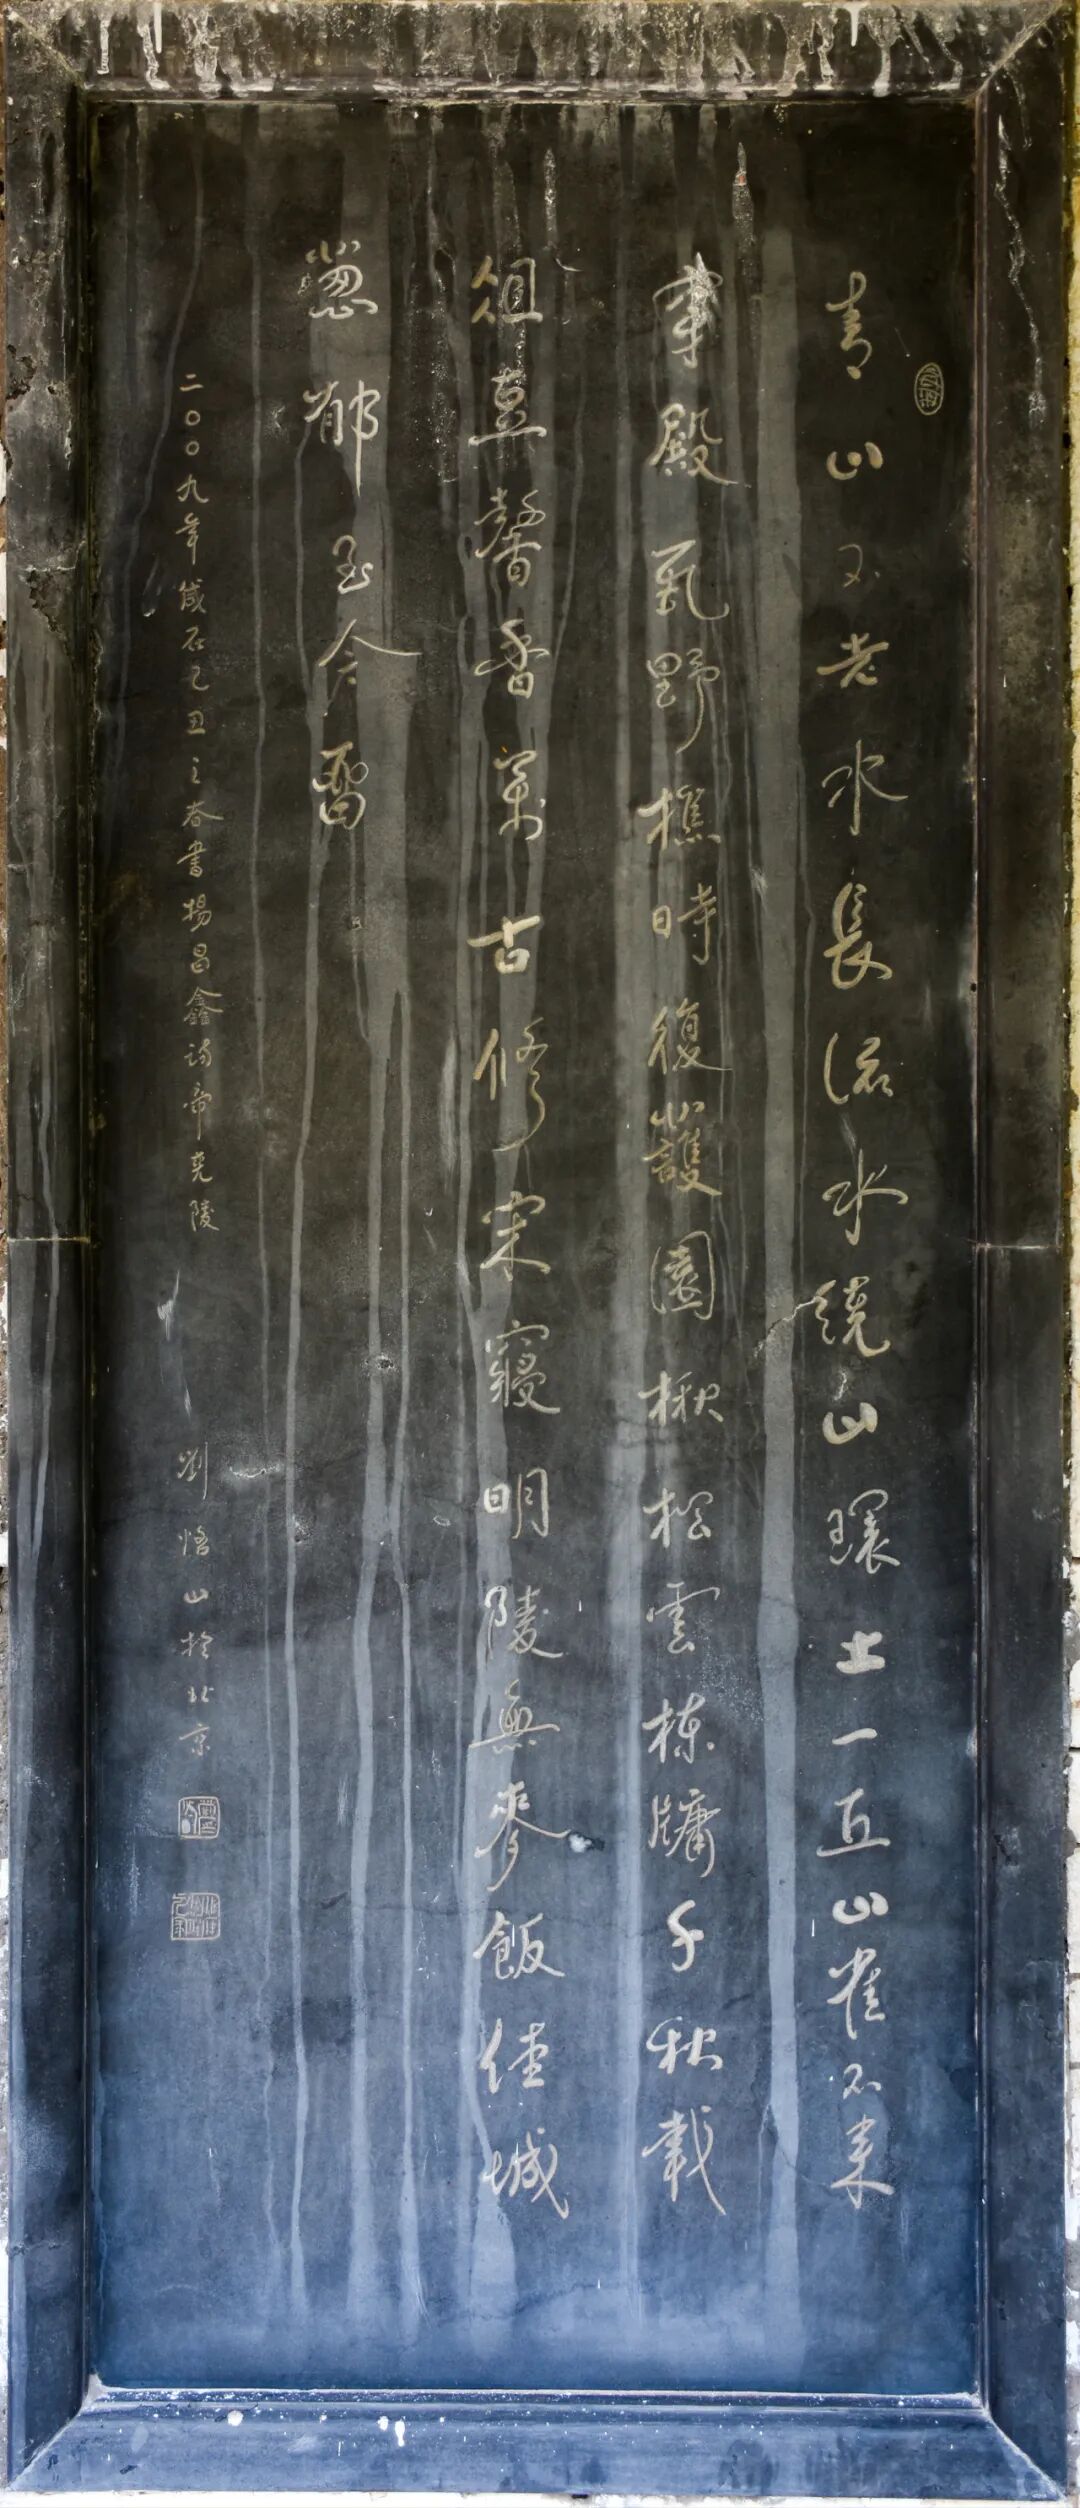 青山不老水長流水繞山環土一丘山雀不来
殿野樵時復護園楸松雲棟牖千秋載
俎豆馨香萬古修宋寢明陵無麥飯佳城
葱郁至今留
二〇〇九年歲在己丑之春書楊昌鑫帝堯陵 劉恪山於北京